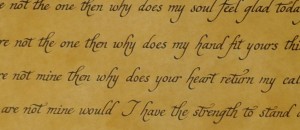 e not the one then why does my soul feel glad toda
re not the one then why does my hand fit yours thi
re not mine then why does your heart return my cal
are not mine would I have the strength to stand